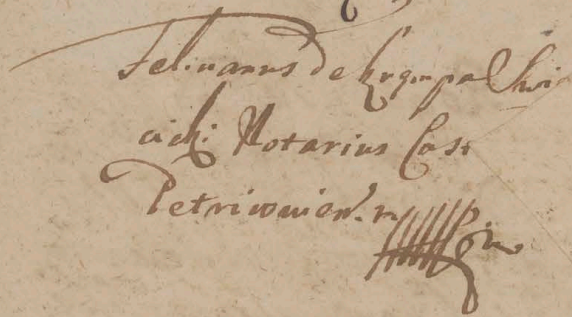 Felicianus de Krempa Świ
cicki Notarius Cast
Petricovien. m